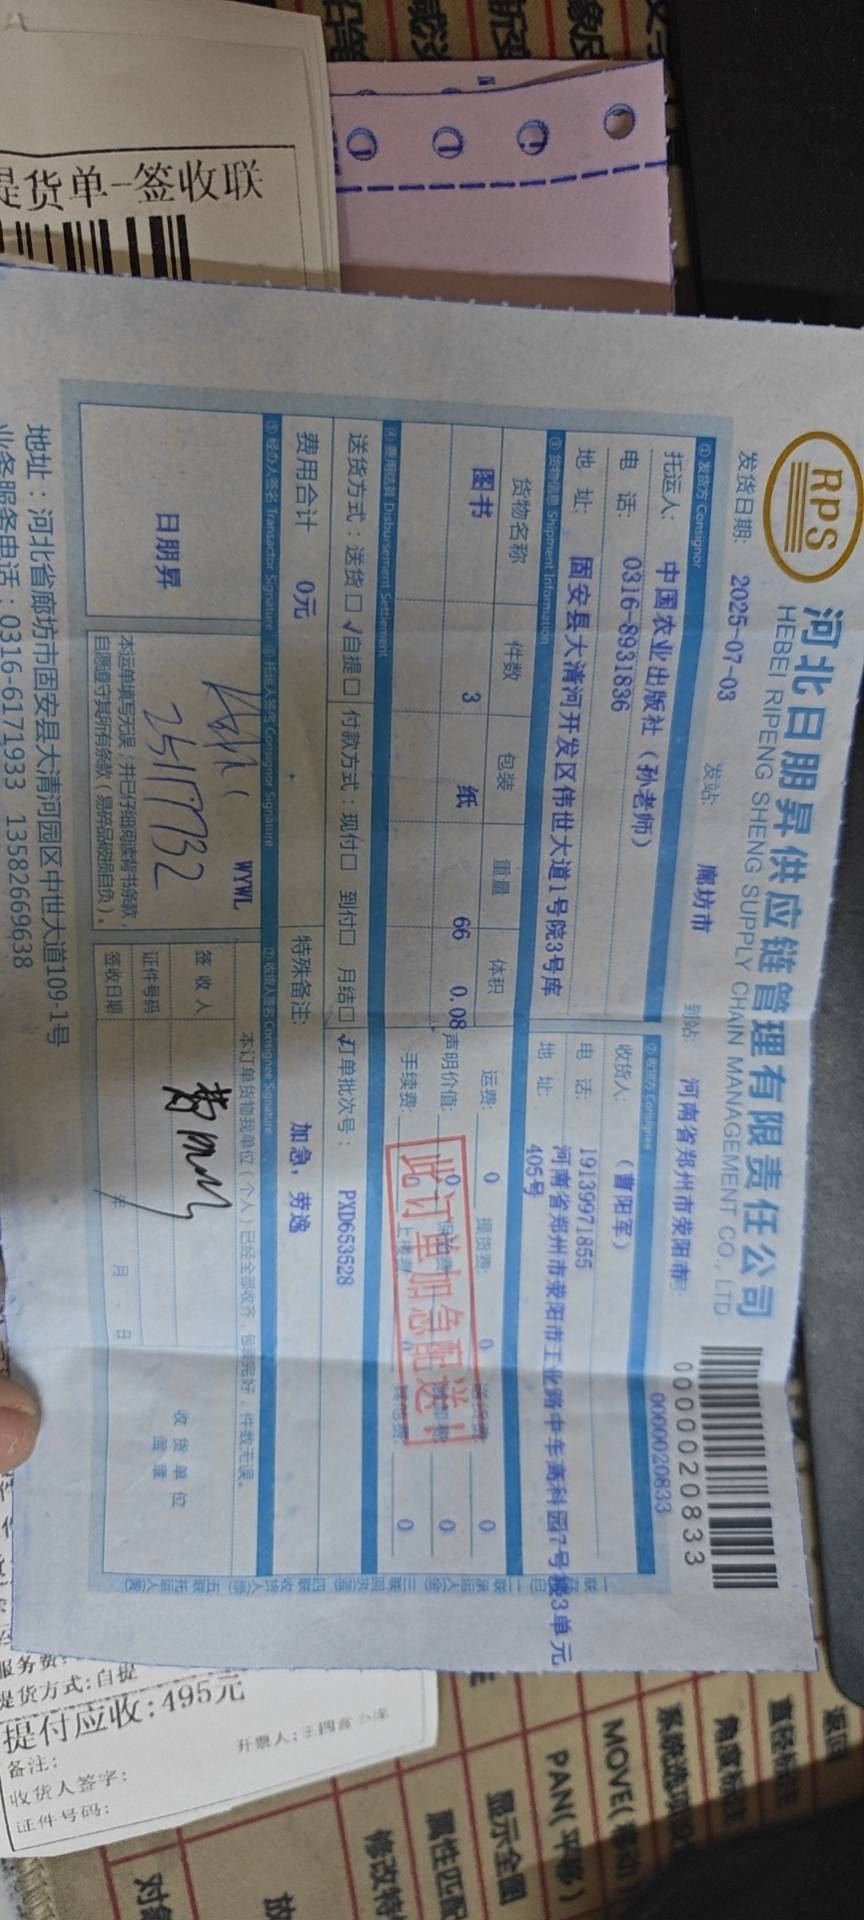 RPS
河北日朋昇供应链管理有限责任公司
HEBEI RIPENG SHENG SUPPLY CHAIN MANAGEMENT CO., LTD
0000020833
0000020833
发货日期: 2025-07-03 发站: 廊坊市 到站: 河南省郑州市荥阳市
①发货方 Consignor ②收货方 Consignee
托运人: 中国农业出版社（孙老师） 收货人: （曹阳军）
电 话: 0316-8931836 电 话: 19139971855
地 址: 固安县大清河开发区伟世大道1号院3号库 地 址: 河南省郑州市荥阳市工业路中车高科园7号楼3单元
405号
③货物信息 Shipment Information
货物名称 件数 包装 重量 体积 运费: 0 提货费: 0 送货费: 0
图书 3 纸 66 0.08 声明价值: 0 保险费: 0
手续费: 0 上楼费: 0 其他费: 0
此订单加急配送!
④费用结算 Disbursement Settlement
送货方式：送货□ √自提□ 付款方式：现付□ 到付□ 月结□ √订单批次号： PXD653528
费用合计 0元 特殊备注: 加急，劳逸
⑤经办人签名 Transactor Signature ⑥托运人签名 Consignor Signature ⑦收货人签名 Consignee Signature
日朋昇
WYWL
本运单填写无误，并已仔细阅读背书条款，
自愿遵守其所有条款（易碎品破损自负）。
本订单货物我单位（个人）已经全部收齐，包装完好，件数无误。
签 收 人
证件号码
签收日期 年 月 日
收 货 单 位
盖 章
地址：河北省廊坊市固安县大清河园区中世大道109-1号
业务服务电话：0316-6171933 13582669638
提货单-签收联
服务费:
提货方式:自提
提付应收:495元
备注:
收货人签字:
证件号码:
返回
直径标注
角度标注
MOVE(移动)
PAN(平移)
显示全图
属性匹配